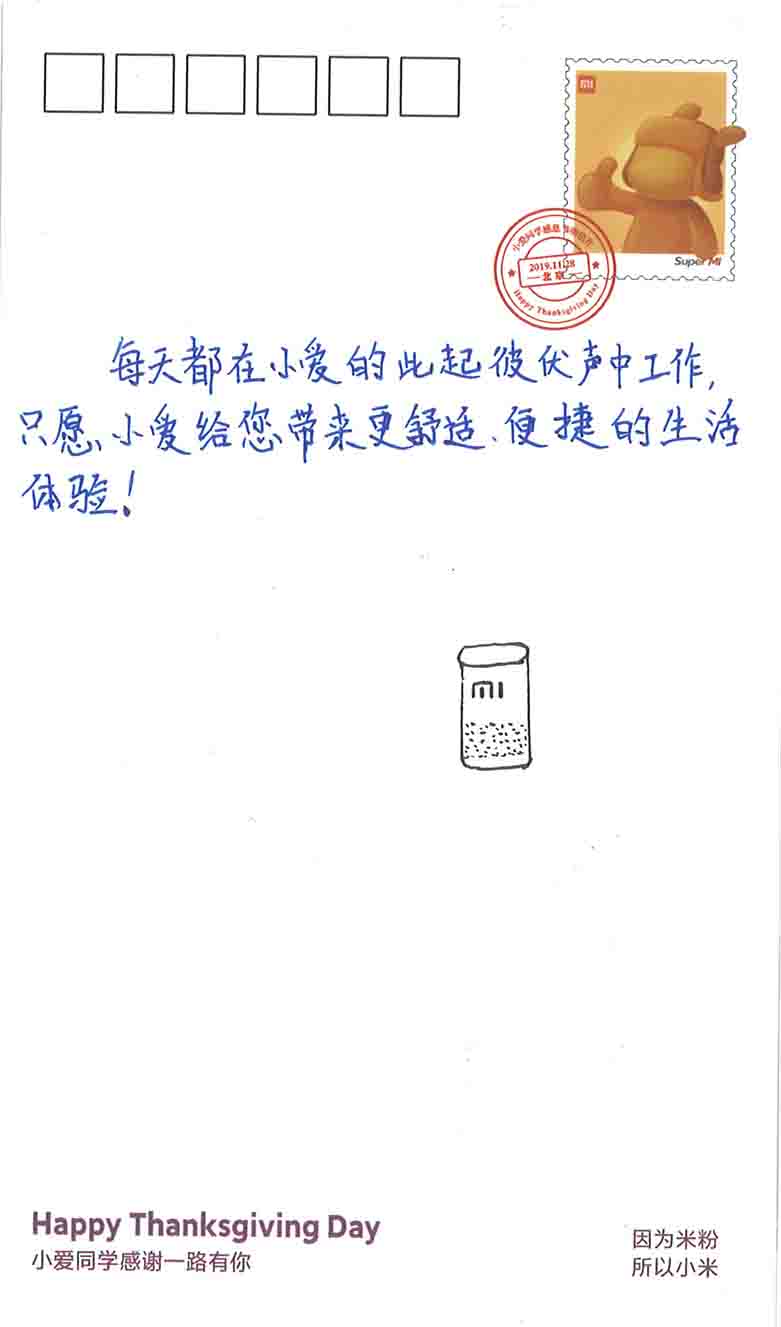 MI
Super MI
小爱同学感恩节明信片
2019.11.28
北京
Happy Thanksgiving Day
每天都在小爱的此起彼伏声中工作,
只愿、小爱给您带来更舒适、便捷的生活
体验!
MI
Happy Thanksgiving Day
小爱同学感谢一路有你
因为米粉
所以小米